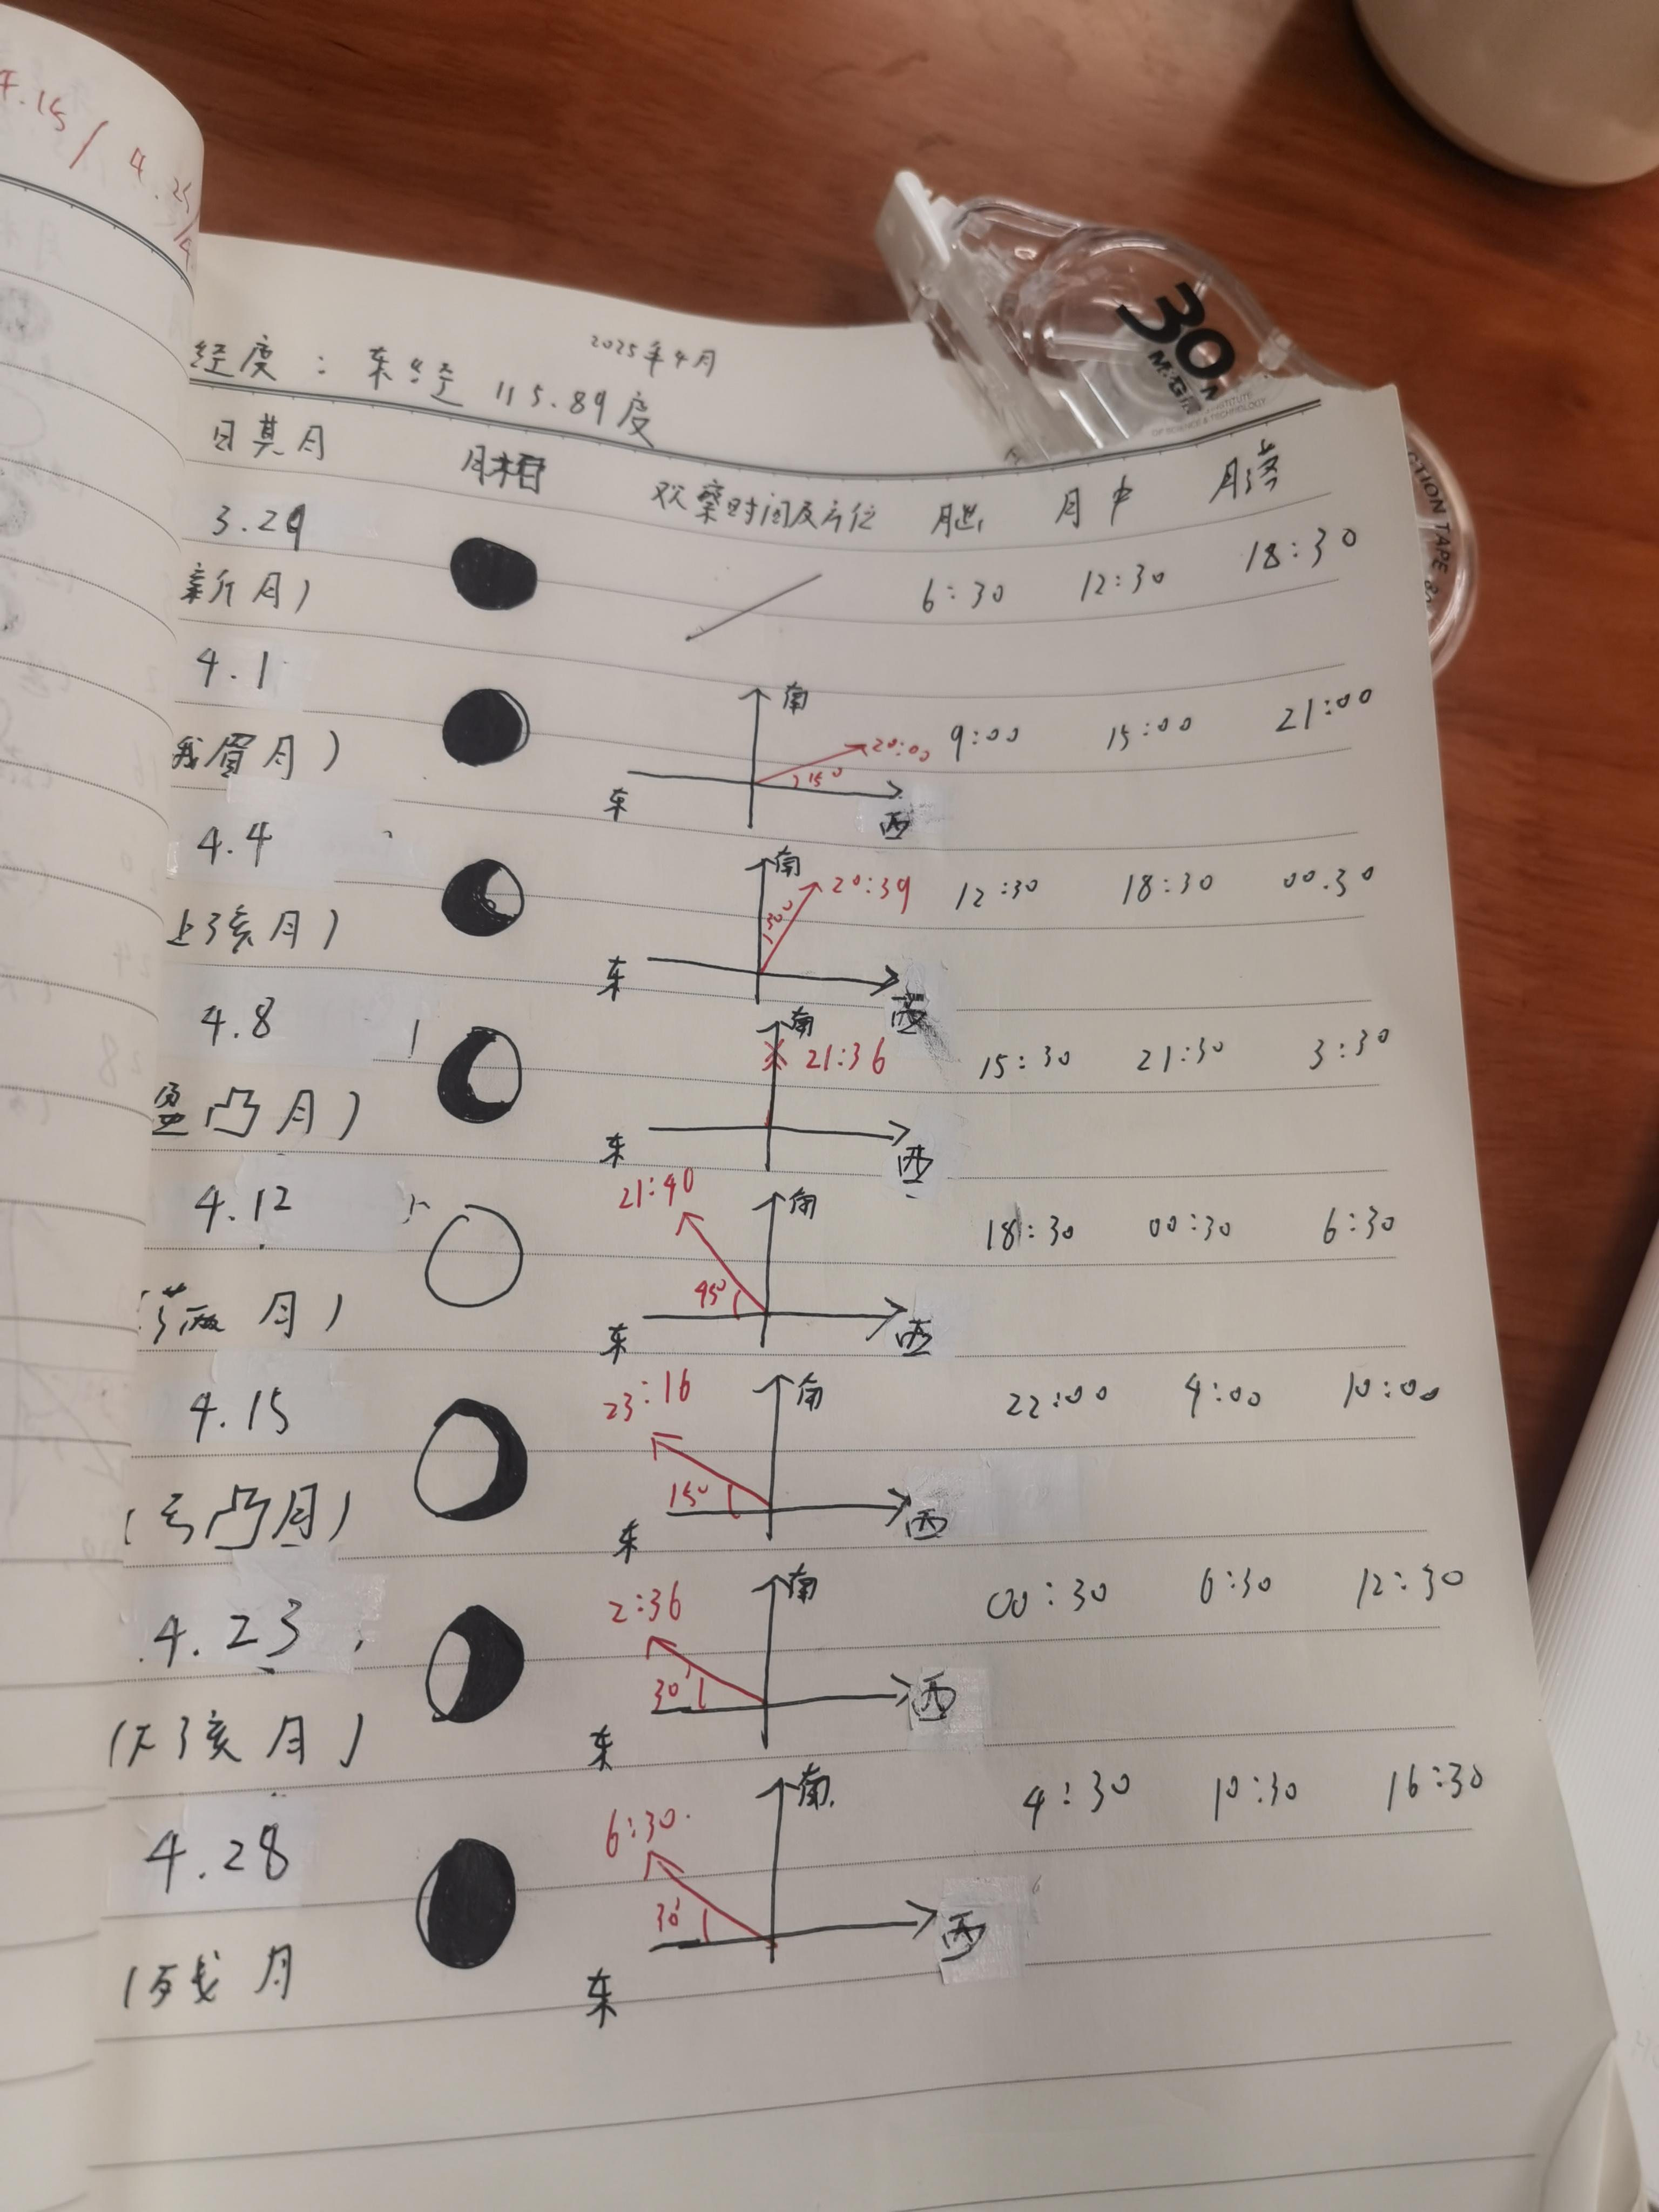 4.15 / 4.25/4
2025年4月
经度：东经 115.89度
日期 月相 观察时间及方位 月出 月中 月落
3.29
新月) 6:30 12:30 18:30
4.1
南
峨眉月) 20:00 15° 9:00 15:00 21:00
东 西
4.4
南
上弦月) 20:39 30° 12:30 18:30 00:30
东 西
4.8
南
盈凸月) 21:36 15:30 21:30 3:30
东 西
4.12
21:40 南
满月) 45° 18:30 00:30 6:30
东 西
4.15
23:16 南 22:00 4:00 10:00
(亏凸月) 15°
东 西
4.23
2:36 南 00:30 6:30 12:30
(下弦月) 30°
东 西
4.28
6:30 南 4:30 10:30 16:30
(残月 30°
东 西
30M
M&G
INSTITUTE
OF SCIENCE & TECHNOLOGY
CTION TAPE